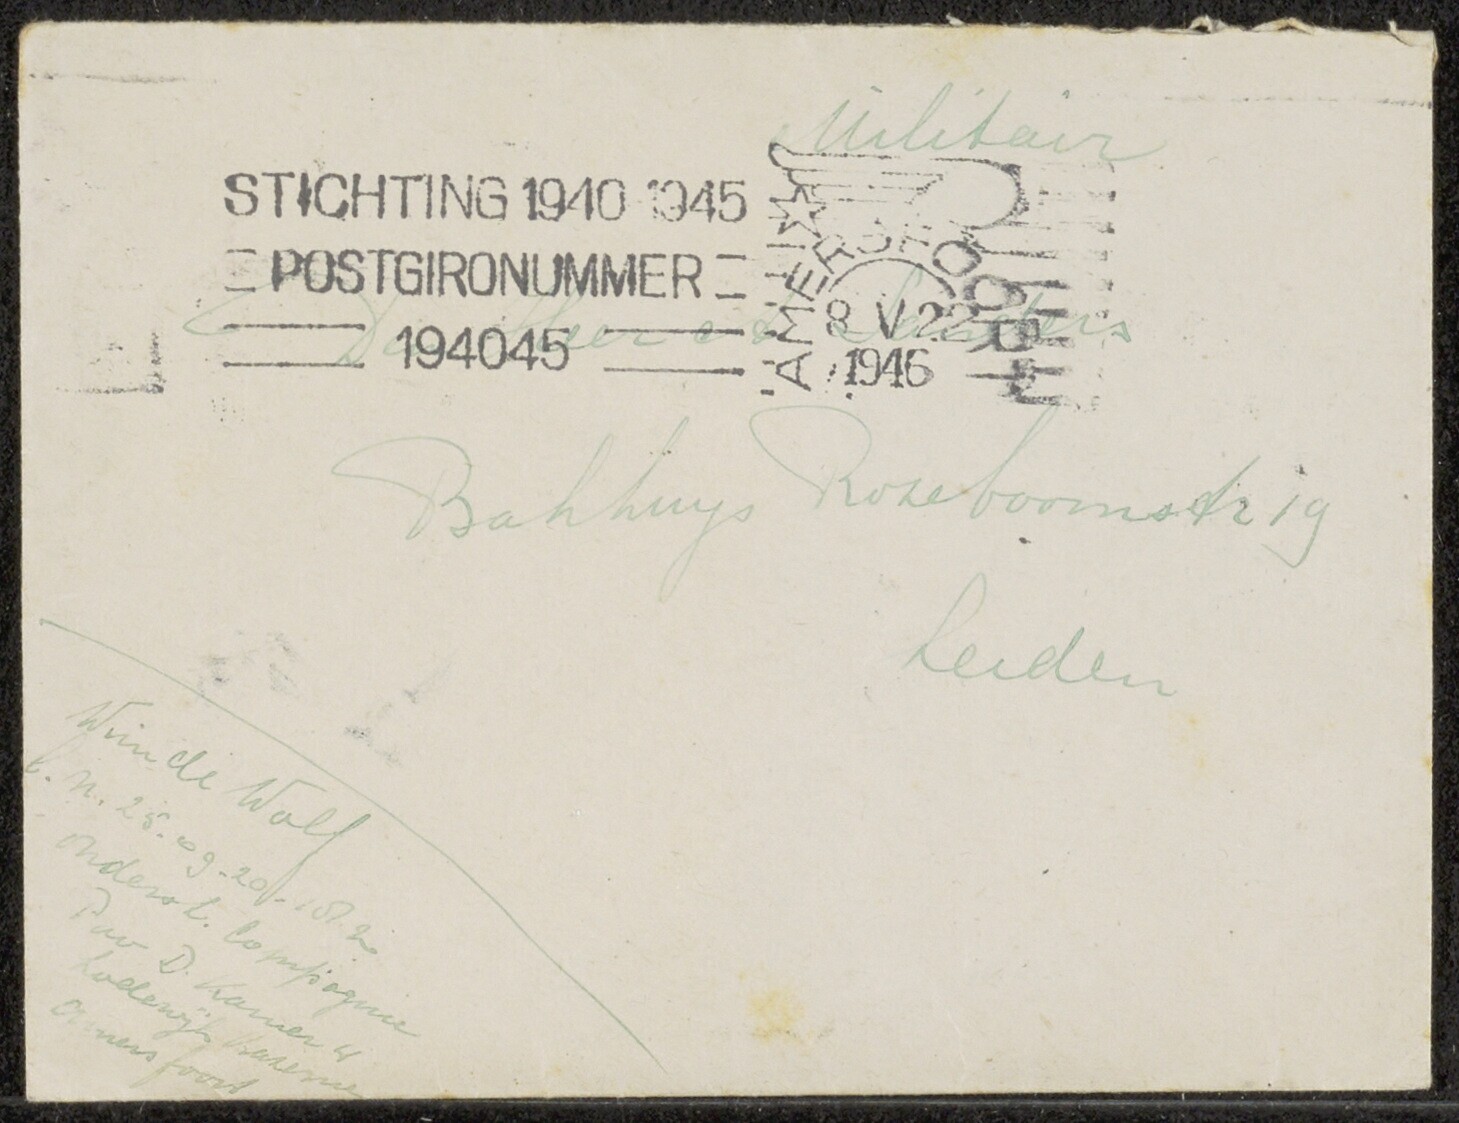 Militair
STICHTING 1940 1945
POSTGIRONUMMER
194045
AMERSFOORT
8 V 22
1946
De Heer Sanders
Bakhuys Rozeboomstr 19
Leiden
Wim de Wolf
l. n. 25.09.20.
Onderst. Compagnie
Pav D. Kamer 4
Lodewijk Kazerne
Amersfoort